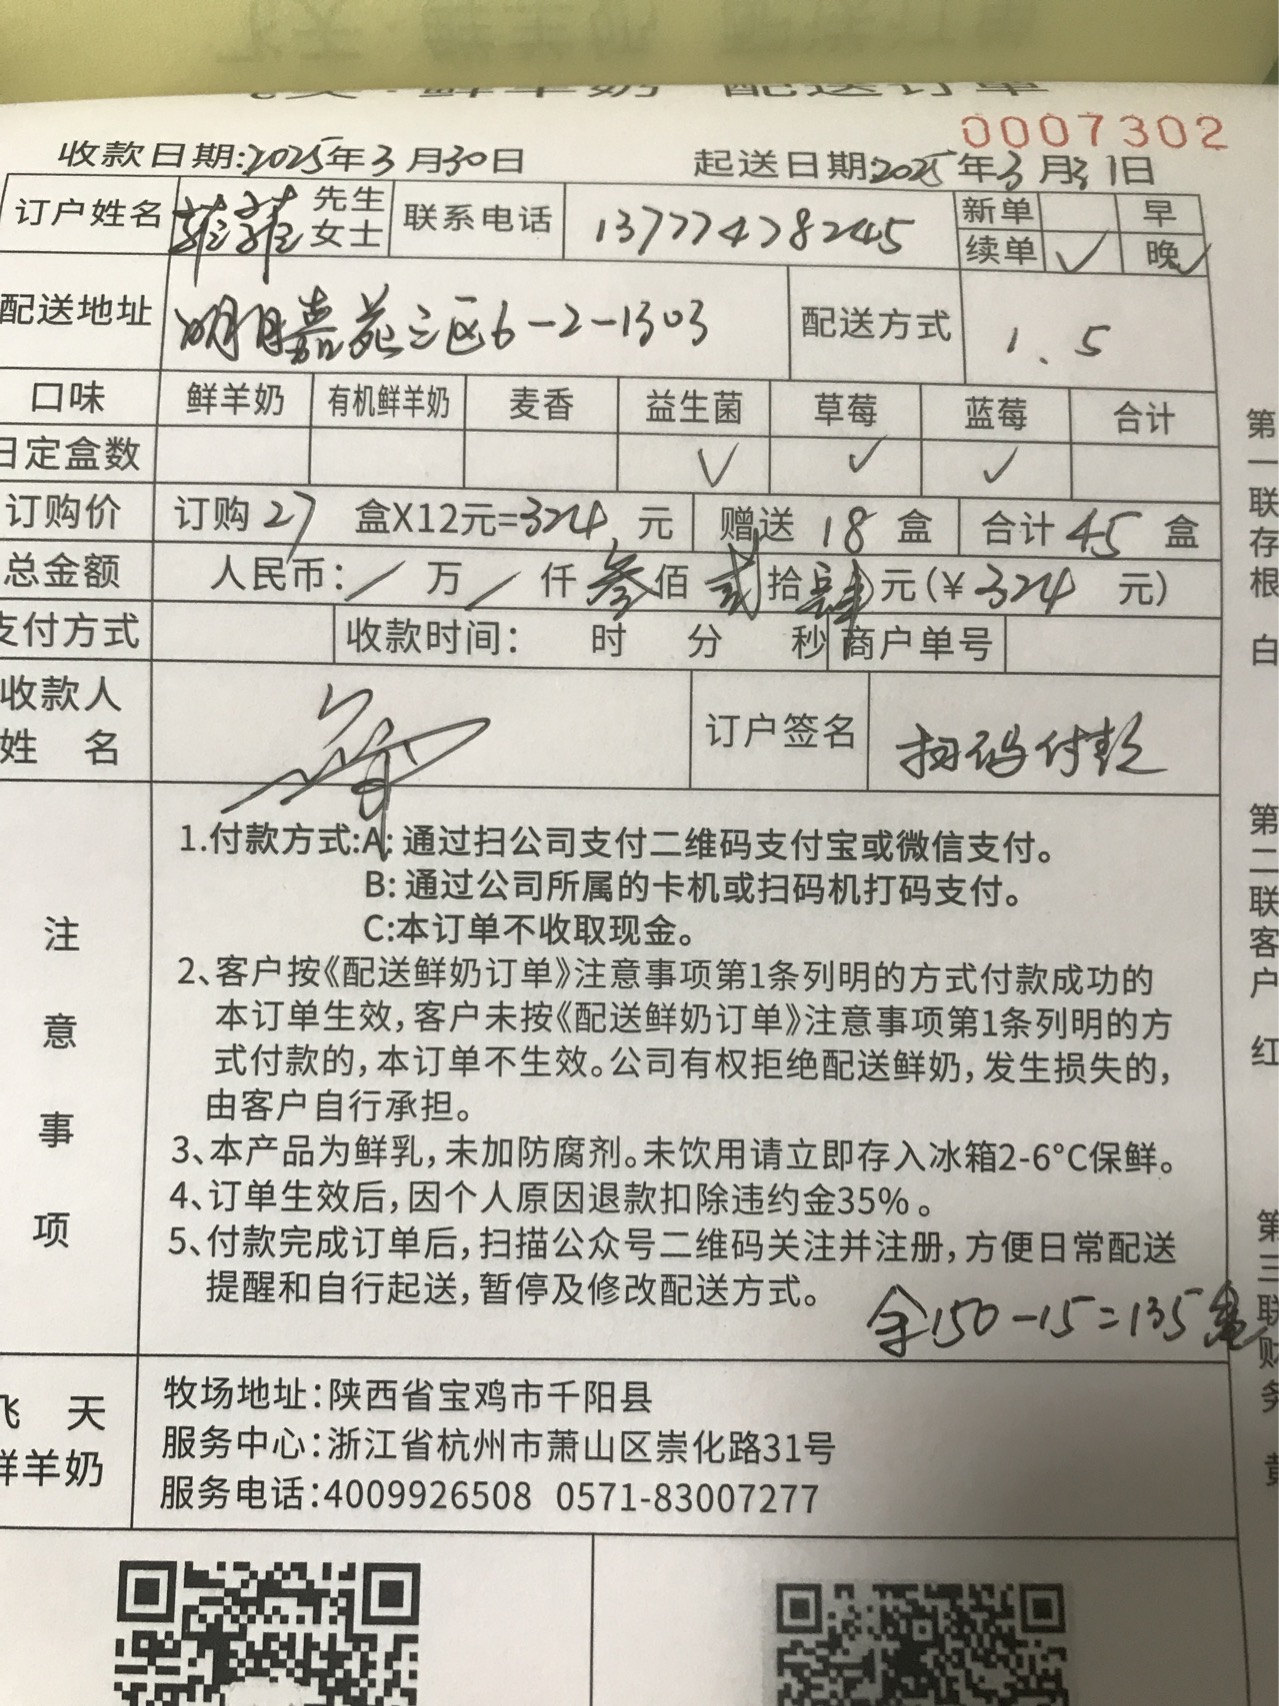 飞天·鲜羊奶 配送订单
0007302
收款日期:2025年3月30日 起送日期2025年3月31日
订户姓名 菲菲 先生 女士 联系电话 13777478245 新单 早 续单 ✓ 晚✓
配送地址 明月嘉苑三区6-2-1303 配送方式 1、5
口味 鲜羊奶 有机鲜羊奶 麦香 益生菌 草莓 蓝莓 合计
日定盒数 ✓ ✓ ✓
订购价 订购27 盒X12元=324元 赠送18盒 合计45盒
总金额 人民币：/万/仟叁佰贰拾肆元(¥324元)
支付方式 收款时间： 时 分 秒 商户单号
收款人姓名 订户签名 扫码付款
注意事项
1.付款方式:A: 通过扫公司支付二维码支付宝或微信支付。
B: 通过公司所属的卡机或扫码机打码支付。
C:本订单不收取现金。
2、客户按《配送鲜奶订单》注意事项第1条列明的方式付款成功的
本订单生效，客户未按《配送鲜奶订单》注意事项第1条列明的方
式付款的，本订单不生效。公司有权拒绝配送鲜奶，发生损失的，
由客户自行承担。
3、本产品为鲜乳，未加防腐剂。未饮用请立即存入冰箱2-6°C保鲜。
4、订单生效后，因个人原因退款扣除违约金35%。
5、付款完成订单后，扫描公众号二维码关注并注册，方便日常配送
提醒和自行起送，暂停及修改配送方式。
余150-15=135盒
飞天
鲜羊奶
牧场地址：陕西省宝鸡市千阳县
服务中心：浙江省杭州市萧山区崇化路31号
服务电话：4009926508 0571-83007277
第一联存根 白
第二联客户 红
第三联财务 黄